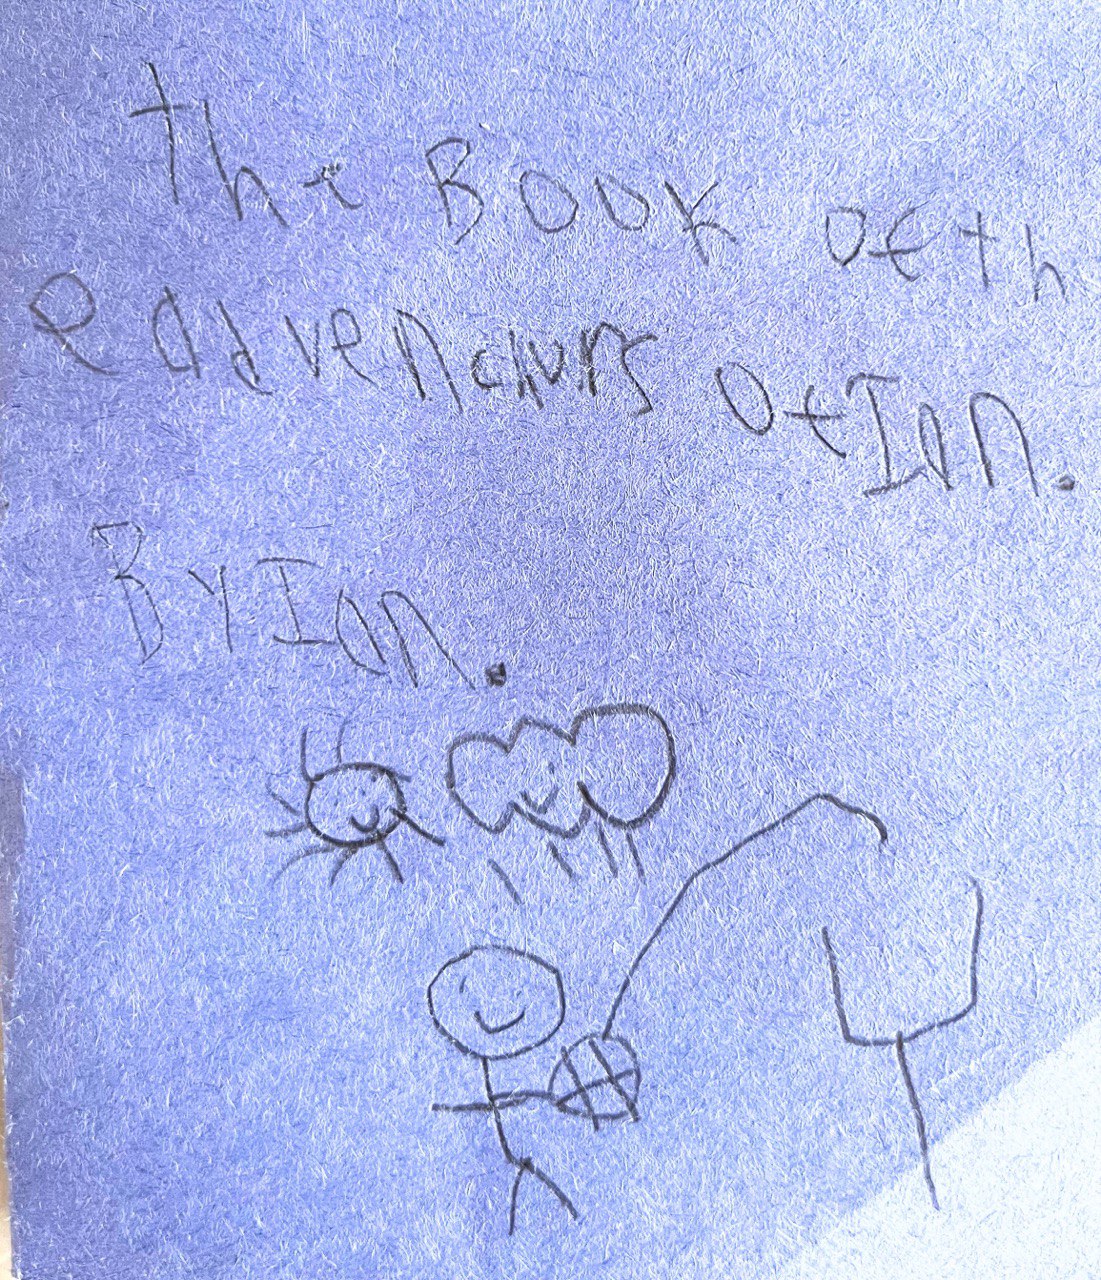 the Book of th
e advenchurs of Ian.
By Ian.